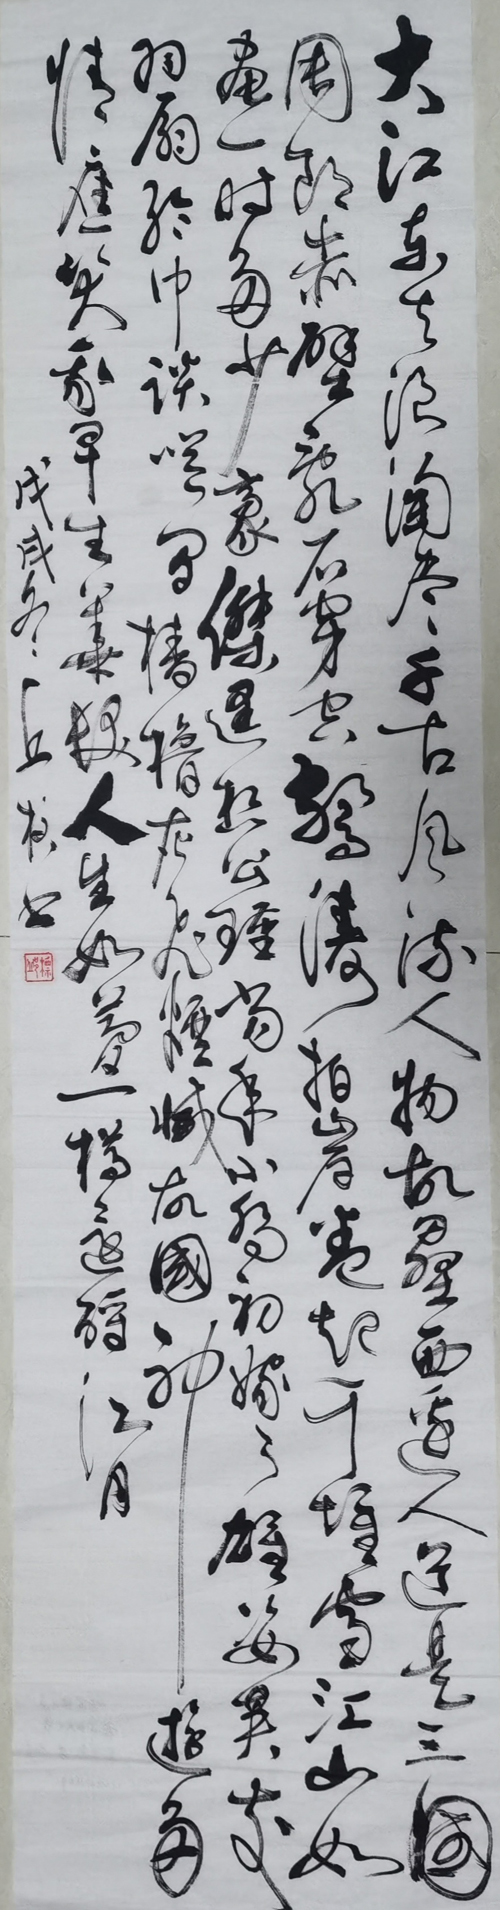 大江东去浪淘尽千古风流人物故垒西边人道是三國
周郎赤壁乱石穿空驚濤拍岸卷起千堆雪江山如
画一时多少豪傑遥想公瑾当年小喬初嫁了雄姿英发
羽扇纶巾谈笑间樯櫓灰飞煙滅故國神遊多
情应笑我早生華发人生如夢一樽还酹江月
戊戌冬 书